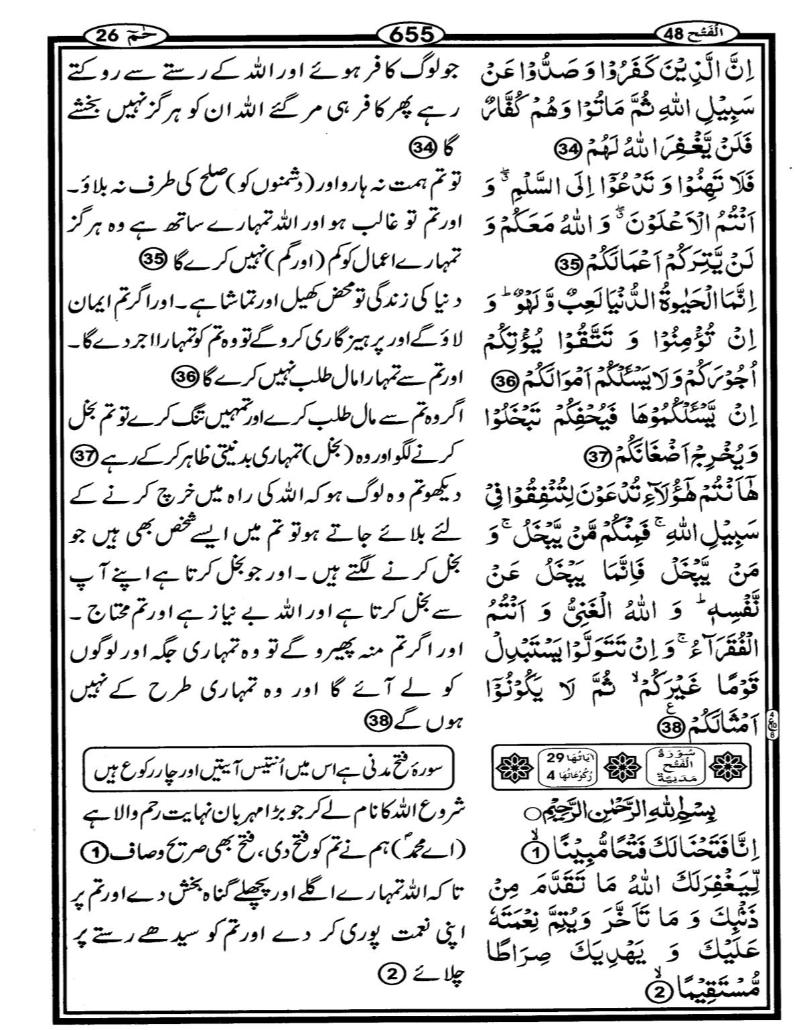 الْفَتْح 48
655
حٰمٓ 26
اِنَّ الَّذِيْنَ كَفَرُوْا وَ صَدُّوْا عَنْ
سَبِيْلِ اللّٰهِ ثُمَّ مَاتُوْا وَهُمْ كُفَّارٌ
فَلَنْ يَّغْفِرَ اللّٰهُ لَهُمْ ﴿34﴾
فَلَا تَهِنُوْا وَ تَدْعُوْٓا اِلَى السَّلْمِ ۖ وَ
اَنْتُمُ الْاَعْلَوْنَ ۖ وَ اللّٰهُ مَعَكُمْ وَ
لَنْ يَّتِرَكُمْ اَعْمَالَكُمْ ﴿35﴾
اِنَّمَا الْحَيٰوةُ الدُّنْيَا لَعِبٌ وَّ لَهْوٌ ؕ وَ
اِنْ تُؤْمِنُوْا وَ تَتَّقُوْا يُؤْتِكُمْ
اُجُوْرَكُمْ وَ لَا يَسْـَٔلْكُمْ اَمْوَالَكُمْ ﴿36﴾
اِنْ يَّسْـَٔلْكُمُوْهَا فَيُحْفِكُمْ تَبْخَلُوْا
وَ يُخْرِجْ اَضْغَانَكُمْ ﴿37﴾
هٰۤاَنْتُمْ هٰۤؤُلَآءِ تُدْعَوْنَ لِتُنْفِقُوْا فِيْ
سَبِيْلِ اللّٰهِ ۚ فَمِنْكُمْ مَّنْ يَّبْخَلُ ۚ وَ
مَنْ يَّبْخَلْ فَاِنَّمَا يَبْخَلُ عَنْ
نَّفْسِهٖ ؕ وَ اللّٰهُ الْغَنِيُّ وَ اَنْتُمُ
الْفُقَرَآءُ ۚ وَ اِنْ تَتَوَلَّوْا يَسْتَبْدِلْ
قَوْمًا غَيْرَكُمْ ۙ ثُمَّ لَا يَكُوْنُوْۤا
اَمْثَالَكُمْ ﴿38﴾
سُوْرَةُ الْفَتْحِ مَدَنِيَّةٌ
اٰيَاتُهَا 29
رُكُوْعَاتُهَا 4
بِسْمِ اللّٰهِ الرَّحْمٰنِ الرَّحِيْمِ
اِنَّا فَتَحْنَا لَكَ فَتْحًا مُّبِيْنًا ۙ ﴿1﴾
لِّيَغْفِرَ لَكَ اللّٰهُ مَا تَقَدَّمَ مِنْ
ذَنْۢبِكَ وَ مَا تَاَخَّرَ وَ يُتِمَّ نِعْمَتَهٗ
عَلَيْكَ وَ يَهْدِيَكَ صِرَاطًا
مُّسْتَقِيْمًا ۙ ﴿2﴾
جو لوگ کافر ہوئے اور اللہ کے رستے سے روکتے
رہے پھر کافر ہی مر گئے اللہ ان کو ہرگز نہیں بخشے
گا ﴿34﴾
تو تم ہمت نہ ہارو اور (دشمنوں کو) صلح کی طرف نہ بلاؤ۔
اور تم تو غالب ہو اور اللہ تمہارے ساتھ ہے وہ ہرگز
تمہارے اعمال کو کم (اور گم) نہیں کرے گا ﴿35﴾
دنیا کی زندگی تو محض کھیل اور تماشا ہے۔ اور اگر تم ایمان
لاؤ گے اور پرہیزگاری کرو گے تو وہ تم کو تمہارا اجر دے گا۔
اور تم سے تمہارا مال طلب نہیں کرے گا ﴿36﴾
اگر وہ تم سے مال طلب کرے اور تمہیں تنگ کرے تو تم بخل
کرنے لگو اور وہ (بخل) تمہاری بدنیتی ظاہر کر کے رہے ﴿37﴾
دیکھو تم وہ لوگ ہو کہ اللہ کی راہ میں خرچ کرنے کے
لئے بلائے جاتے ہو تو تم میں ایسے شخص بھی ہیں جو
بخل کرنے لگتے ہیں۔ اور جو بخل کرتا ہے اپنے آپ
سے بخل کرتا ہے اور اللہ بے نیاز ہے اور تم محتاج۔
اور اگر تم منہ پھیرو گے تو وہ تمہاری جگہ اور لوگوں
کو لے آئے گا اور وہ تمہاری طرح کے نہیں
ہوں گے ﴿38﴾
سورۂ فتح مدنی ہے اس میں اُنتیس آیتیں اور چار رکوع ہیں
شروع اللہ کا نام لے کر جو بڑا مہربان نہایت رحم والا ہے
(اے محمدؐ) ہم نے تم کو فتح دی، فتح بھی صریح و صاف ﴿1﴾
تاکہ اللہ تمہارے اگلے اور پچھلے گناہ بخش دے اور تم پر
اپنی نعمت پوری کر دے اور تم کو سیدھے رستے پر
چلائے ﴿2﴾